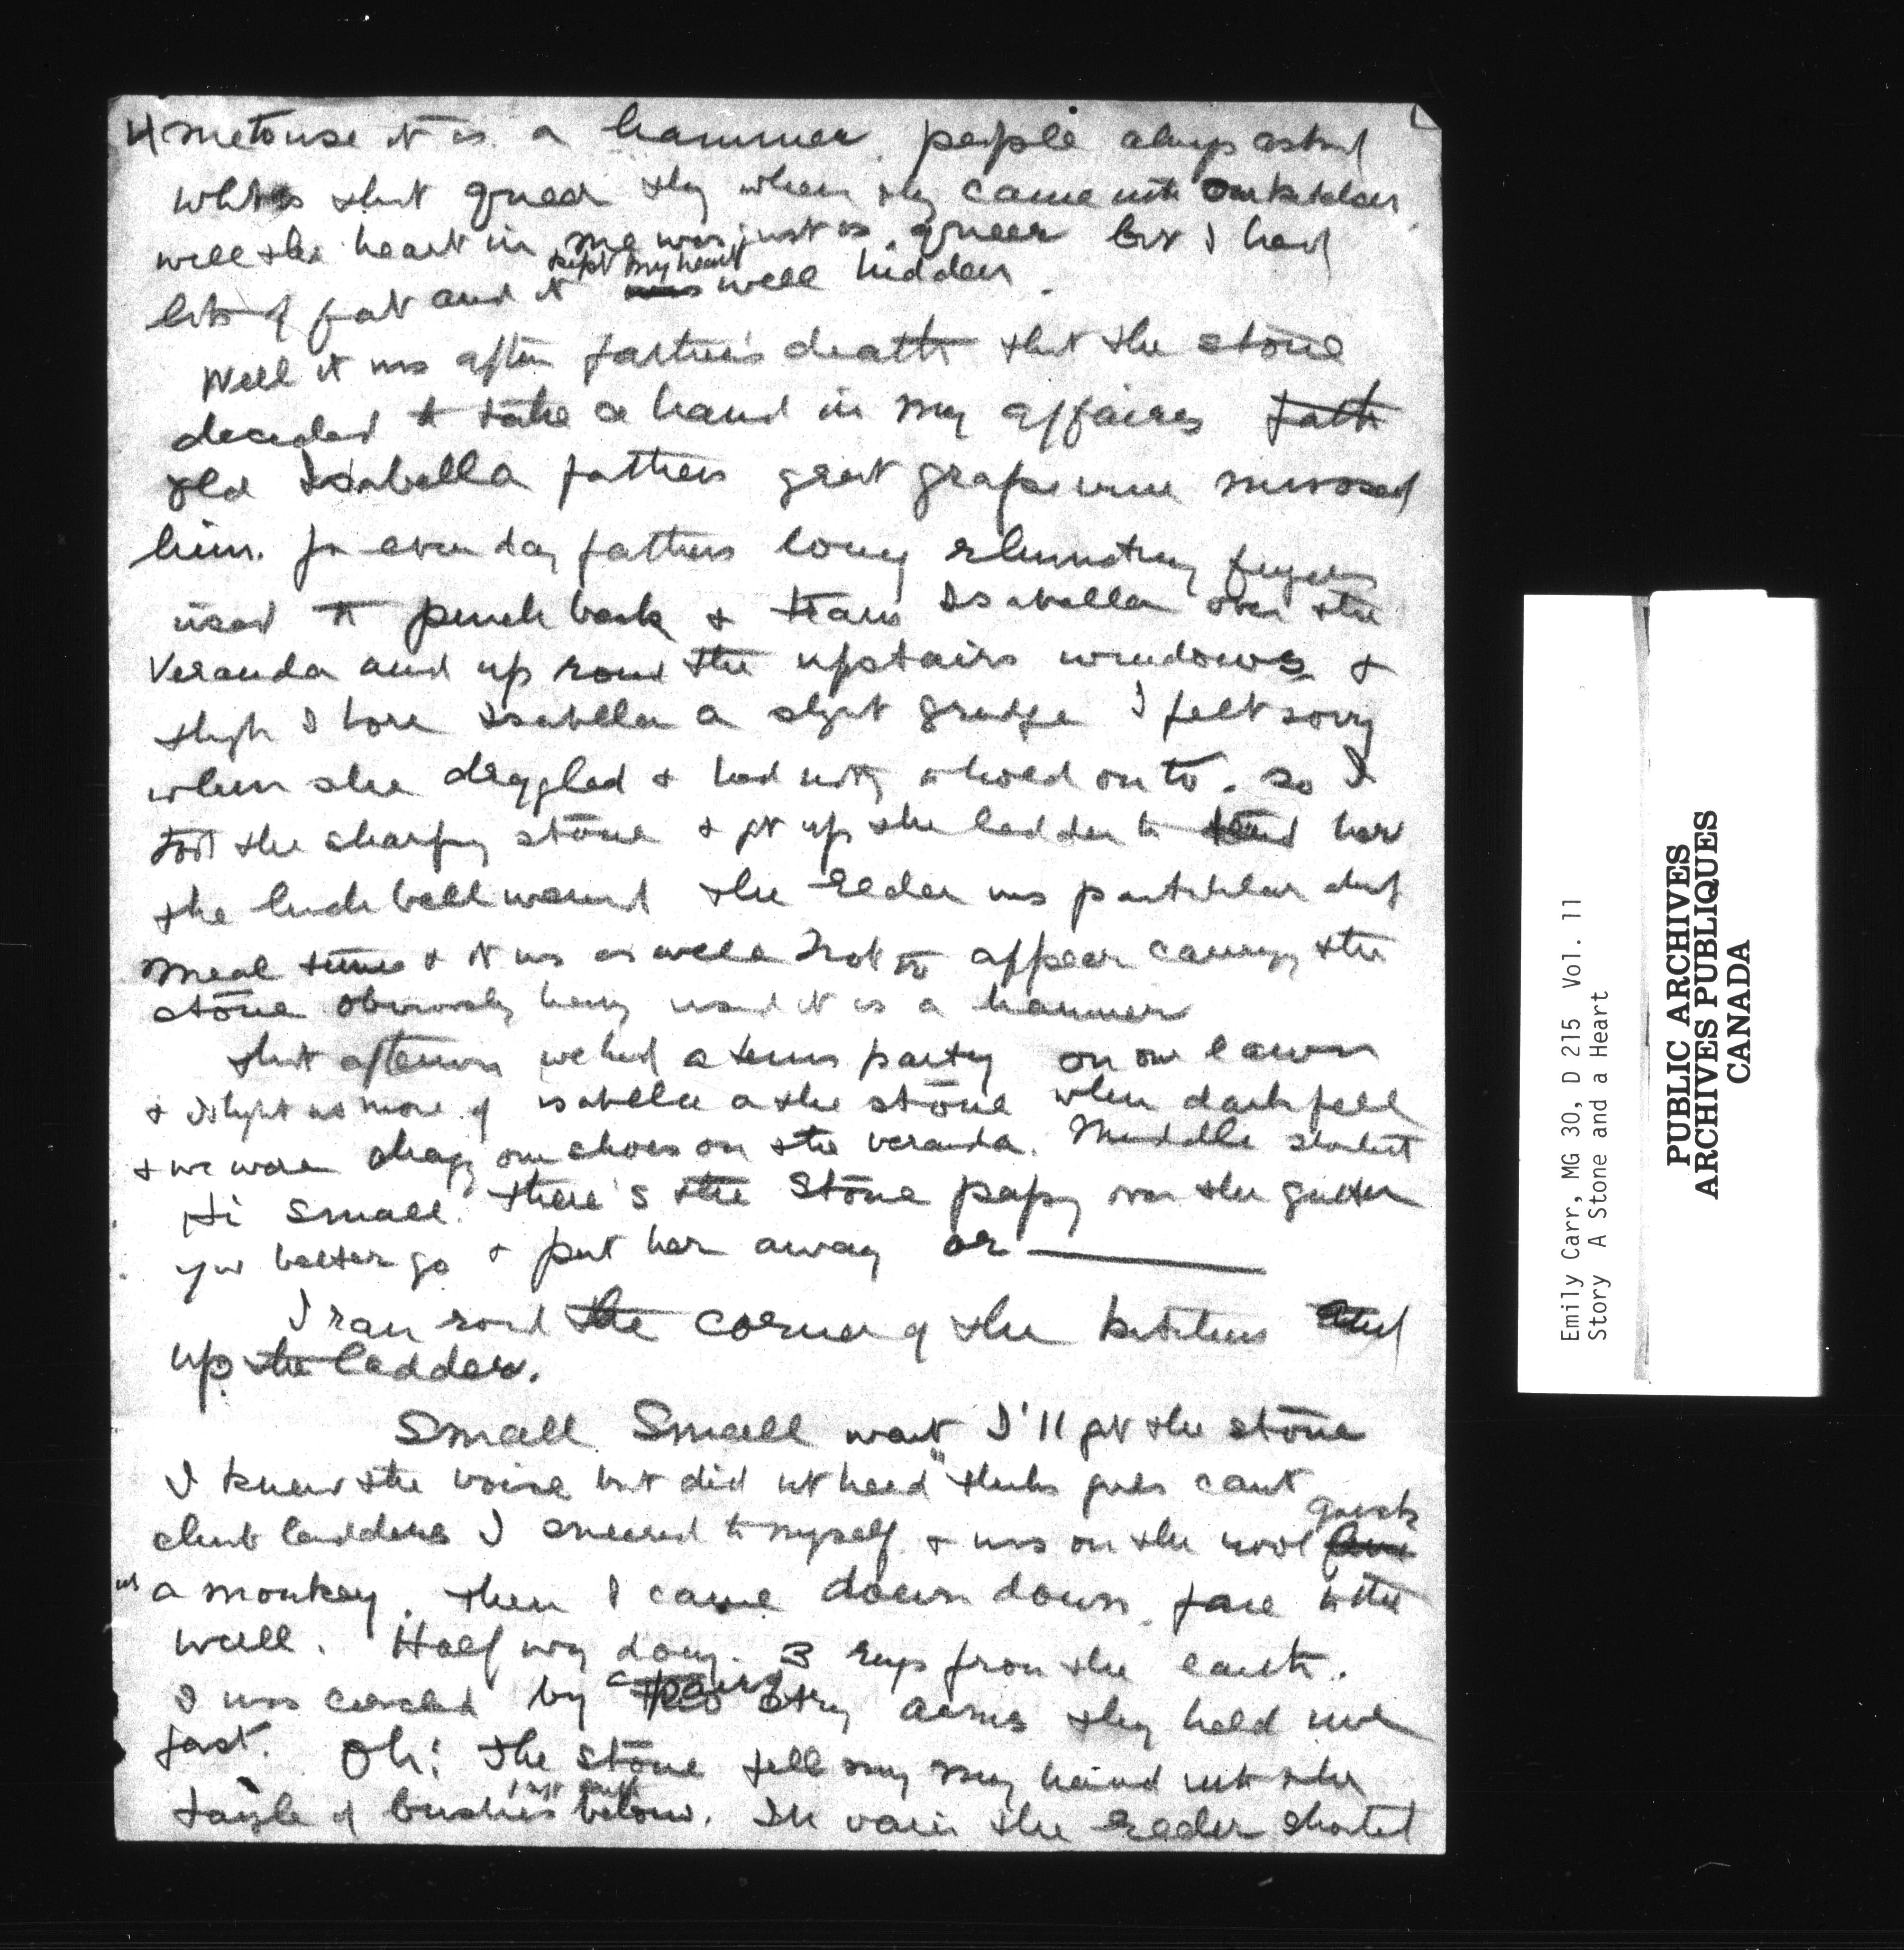 4 me to use it as a hammer. people always asked
whats that queer thing when they came into our kitchen
well the heart in me was just as queer but I had
lots of fat and it kept my heart well hidden.
Well it was after fathers death that the stone
decided to take a hand in my affairs fath
old Isabella fathers great grapevine missed
him. for every day fathers long fingers
used to pinch back & train Isabella over the
Veranda and up round the upstairs windows &
though I bore Isabella a slight grudge I felt sorry
when she draggled & had nothing to hold on to. so I
took the sharpening stone & got up the ladder to her
the lunch bell the Elder was particular about
meal times & it was as well not to appear carrying the
stone obviously having used it as a hammer
that afternoon we had a tennis party on our lawn
& I thought no more of isabella or the stone when dark fell
& we were changing our shoes on the veranda. Middle shouted
Hi Small. there's the stone peeping over the gutter
you better go & put her away or ———
I ran round the corner of the kitchen and
up the ladder.
Small Small wait I'll get the stone
I knew the voice but did not heed "thinks girls cant
climb ladders I sneered to myself & was on the roof quick
as a monkey. then I came down down. face to the
wall. Half way down. 3 rungs from the earth.
I was circled by strong arms they held me
fast. Oh! the stone fell my my hand into the
tangle of bushes below. In vain the Elder shouted
Emily Carr, MG 30, D 215 Vol. 11
Story A Stone and a Heart
PUBLIC ARCHIVES
ARCHIVES PUBLIQUES
CANADA